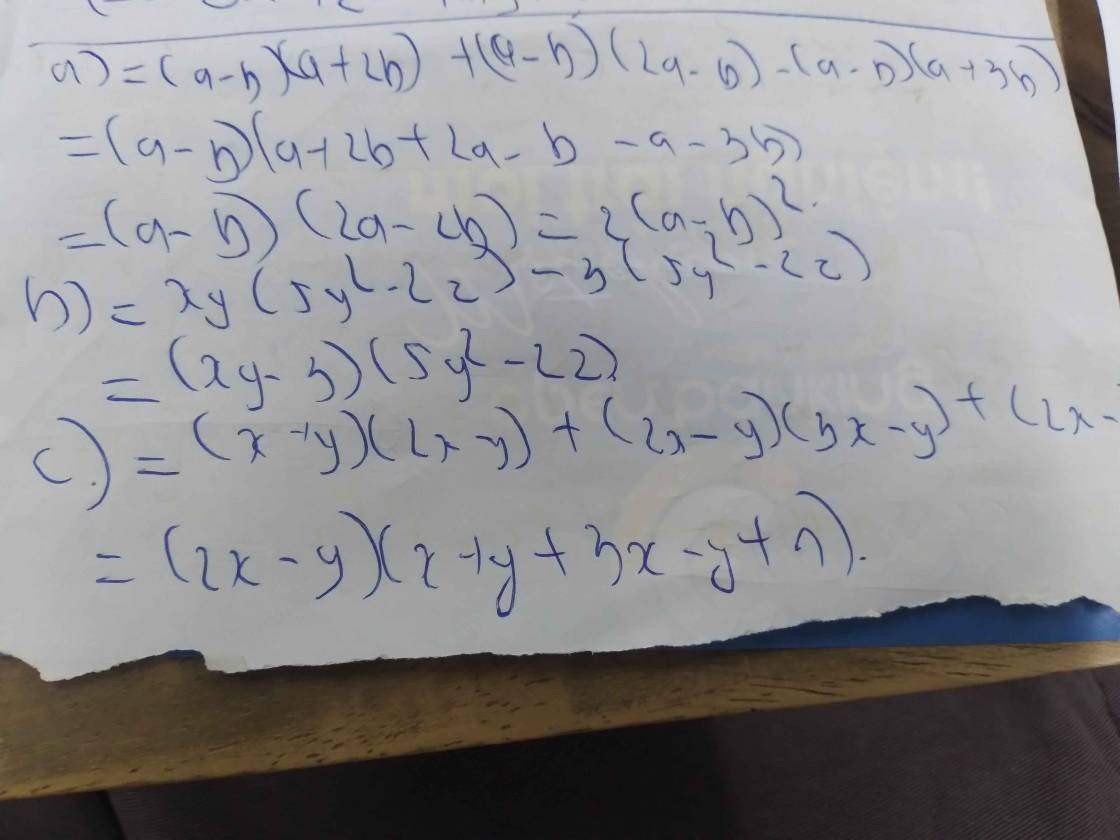 a) = (a-b)(a+2b) +(a-b)(2a-b) -(a-b)(a+3b)
=(a-b)(a+2b+2a-b -a-3b)
=(a-b) (2a-2b) = 2(a-b)².
b) = xy(5y²-2z) -3(5y²-2z)
= (xy-3)(5y²-2z)
c) = (x+y)(2x-y) + (2x-y)(3x-y) + (2x-
= (2x-y)(x+y+3x-y+1).